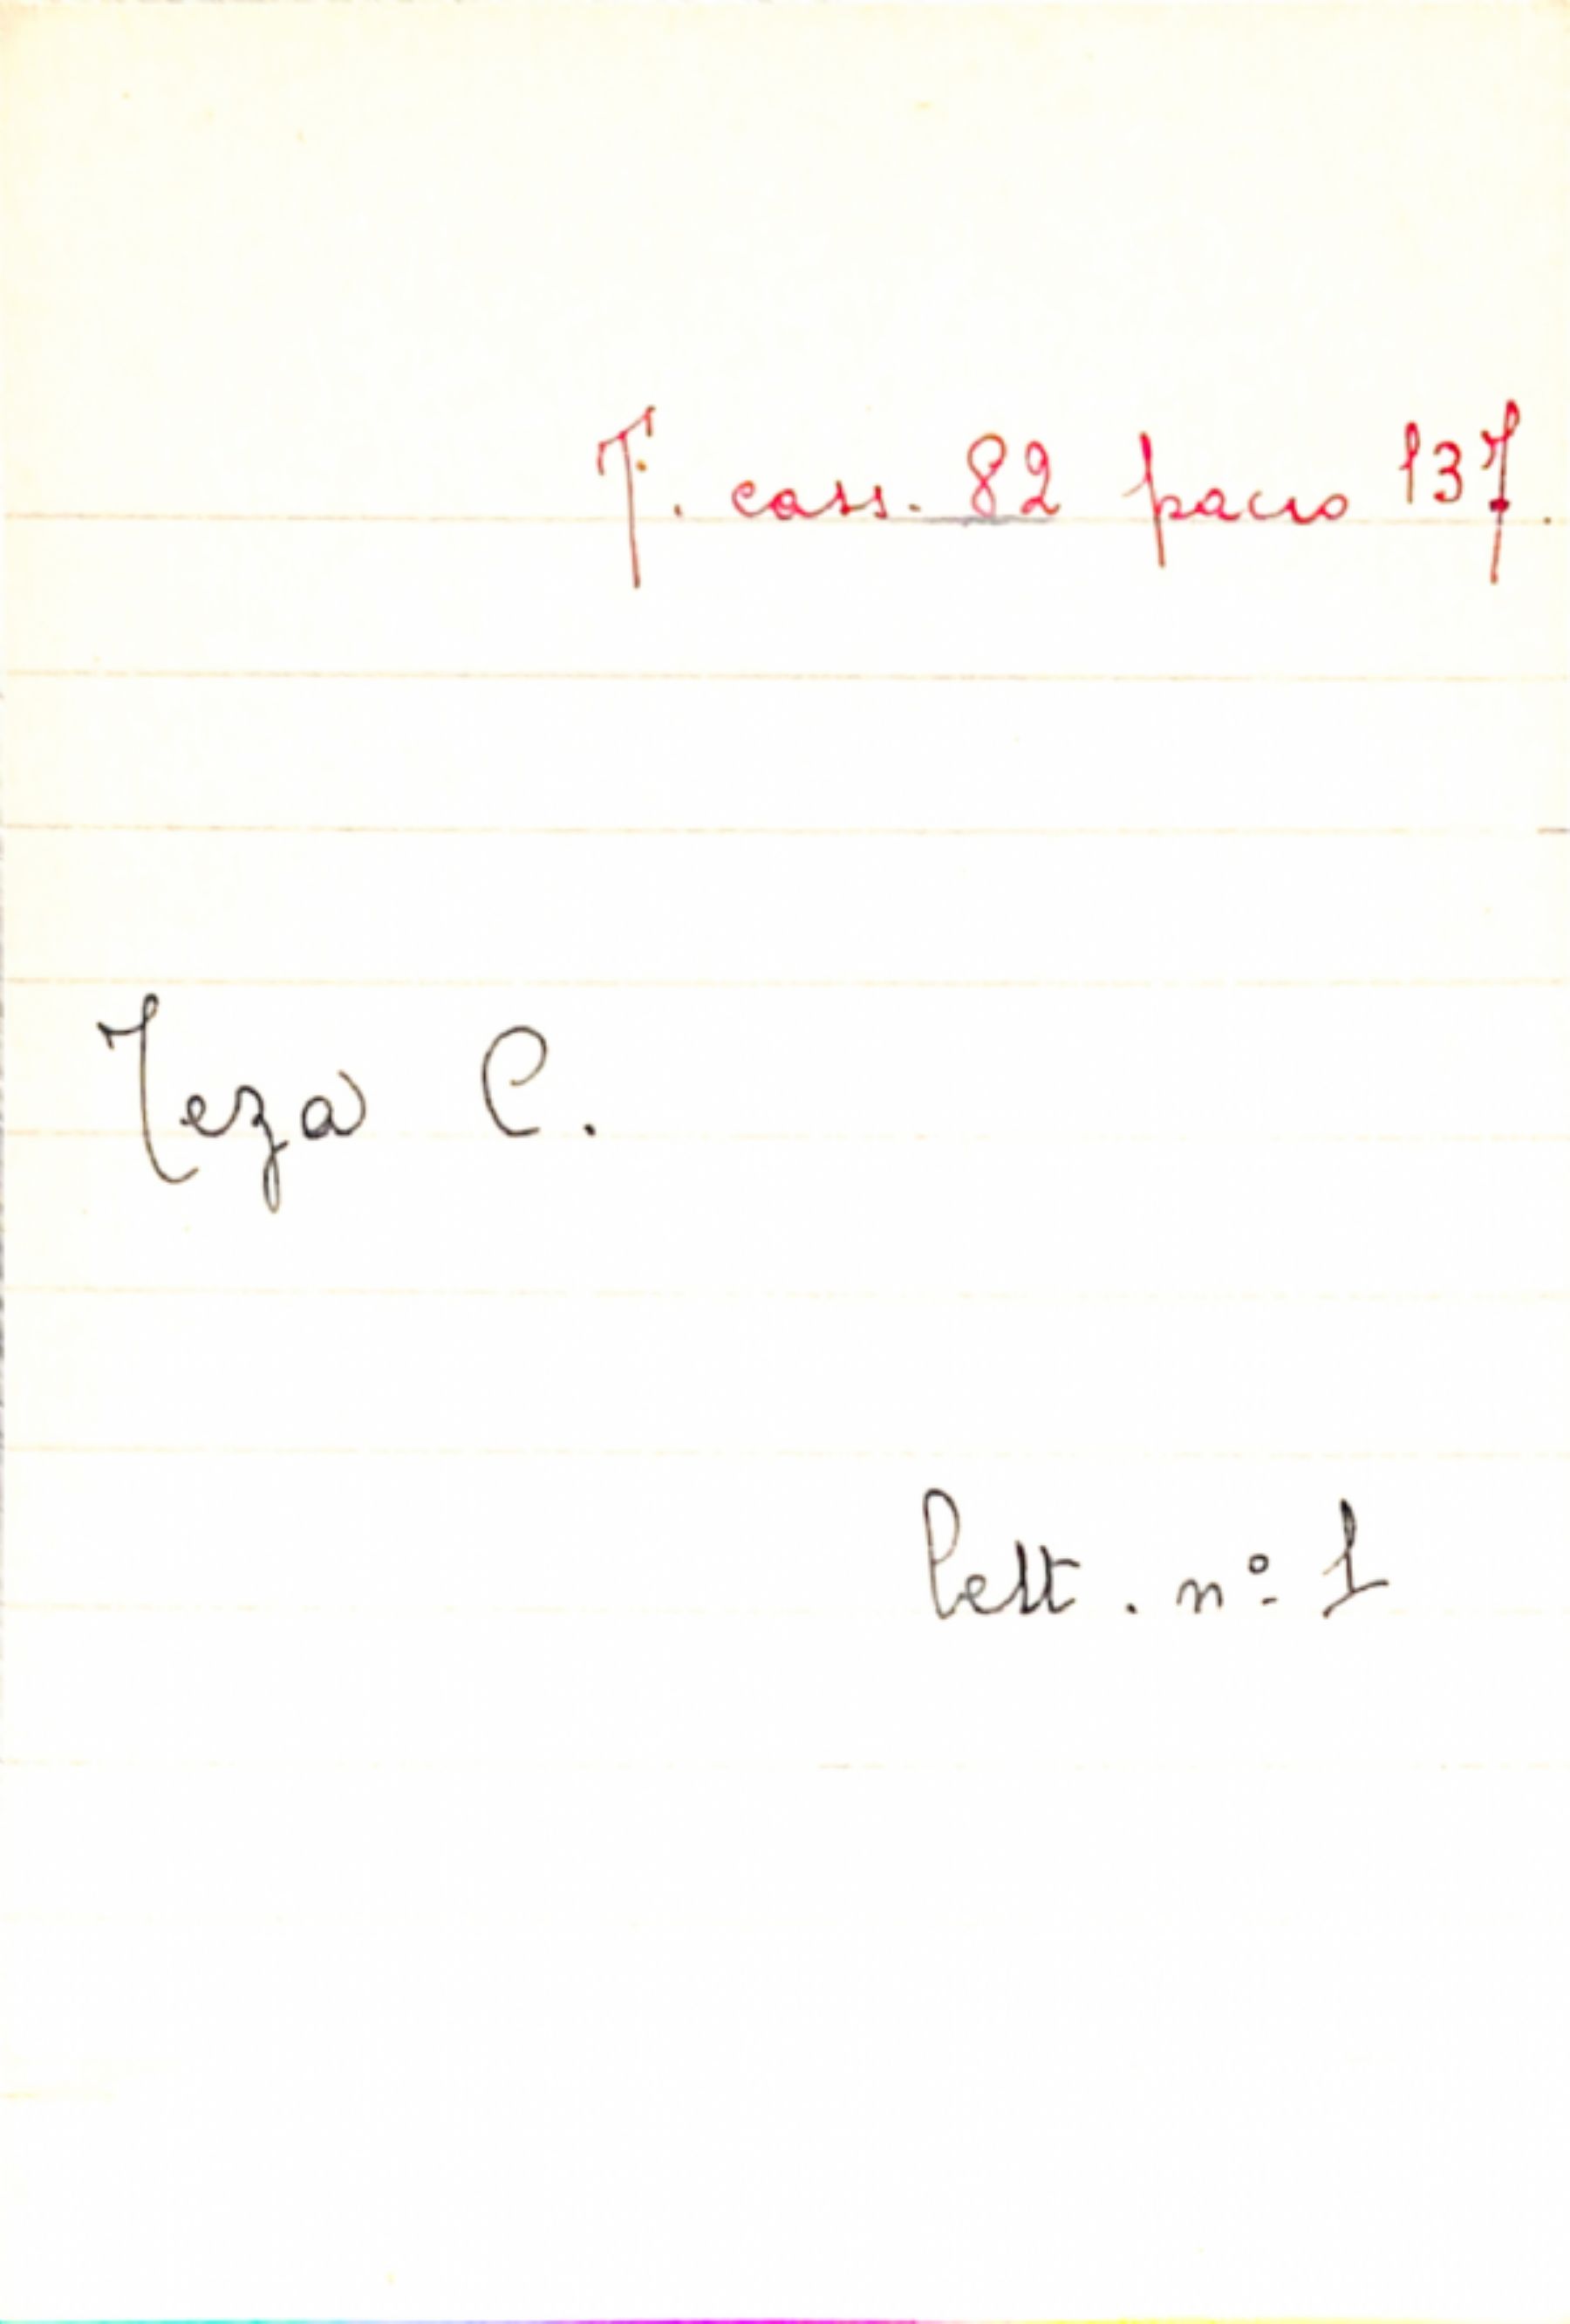 T. cass. 82 pacco 137.
Teza C.
Lett. nº 1